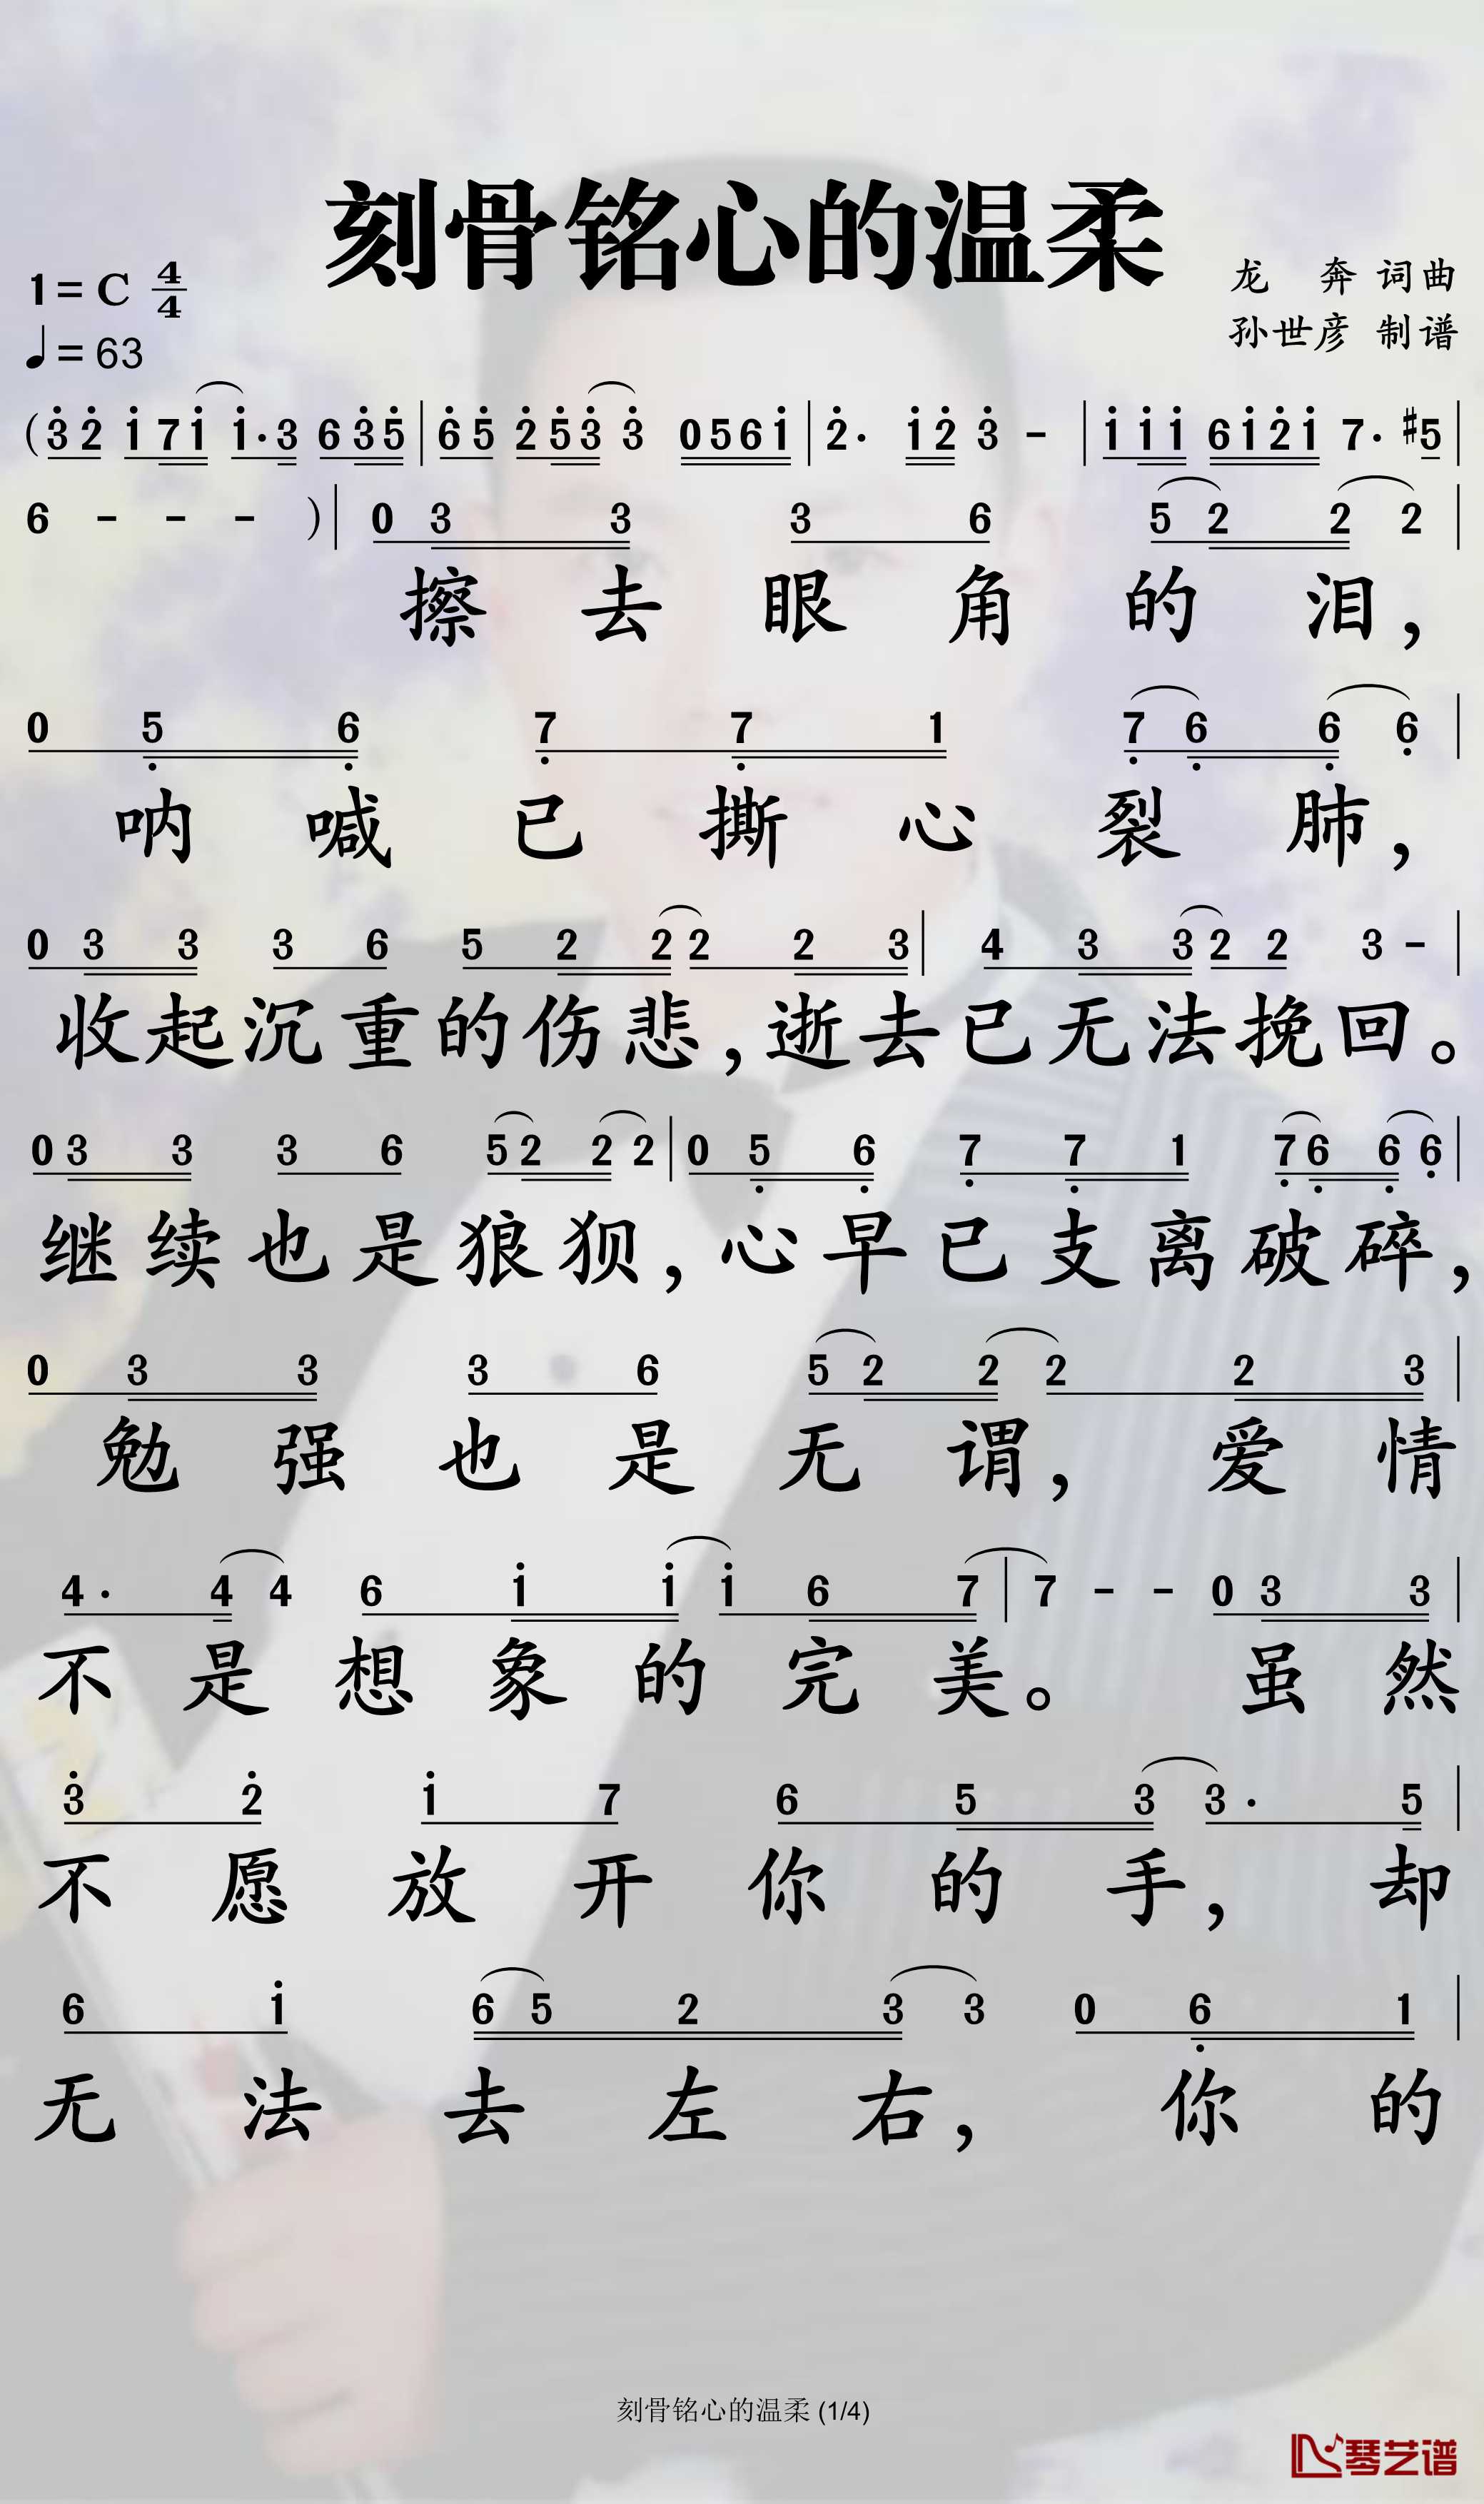 刻骨铭心的温柔
1=C 4/4
♩=63
龙 奔 词曲
孙世彦 制谱
(3̇ 2̇ 1̇ 7 1̇ 1̇· 3 6 3̇ 5̇ | 6̇ 5̇ 2̇ 5̇ 3̇ 3̇ 0 5 6 1̇ | 2̇· 1̇ 2̇ 3̇ - | 1̇ 1̇ 1̇ 6 1̇ 2̇ 1̇ 7· #5 |
6 - - - ) | 0 3 3 3 6 5 2 2 2 |
擦去眼角的泪，
0 5̣ 6̣ 7̣ 7̣ 1 7̣ 6̣ 6̣ 6̣ |
呐喊已撕心裂肺，
0 3 3 3 6 5 2 2 2 2 3 | 4 3 3 2 2 3 - |
收起沉重的伤悲，逝去已无法挽回。
0 3 3 3 6 5 2 2 2 | 0 5̣ 6̣ 7̣ 7̣ 1 7̣ 6̣ 6̣ 6̣ |
继续也是狼狈，心早已支离破碎，
0 3 3 3 6 5 2 2 2 2 3 |
勉强也是无谓，爱情
4· 4 4 6 1̇ 1̇ 1̇ 6 7 | 7 - - 0 3 3 |
不是想象的完美。虽然
3̇ 2̇ 1̇ 7 6 5 3 3· 5 |
不愿放开你的手，却
6 1̇ 6 5 2 3 3 0 6̣ 1 |
无法去左右，你的
刻骨铭心的温柔 (1/4)
琴艺谱